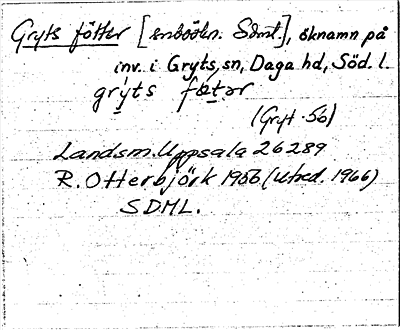 Gryts fötter [inboökn. Sdml.], öknamn på
inv. i Gryts sn, Daga hd, Söd. l.
gryts føtər
(Gryt -56)
Landsm. Uppsala 26289
R. Otterbjörk 1956 (utred. 1966)
SDML.